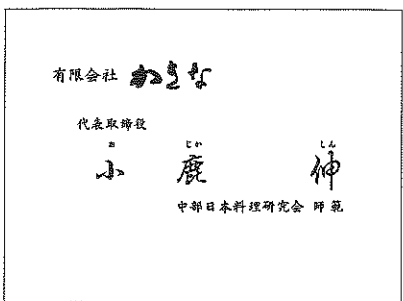 有限会社
代表取締役
お じか しん
小 鹿 伸
中部日本料理研究会 師範